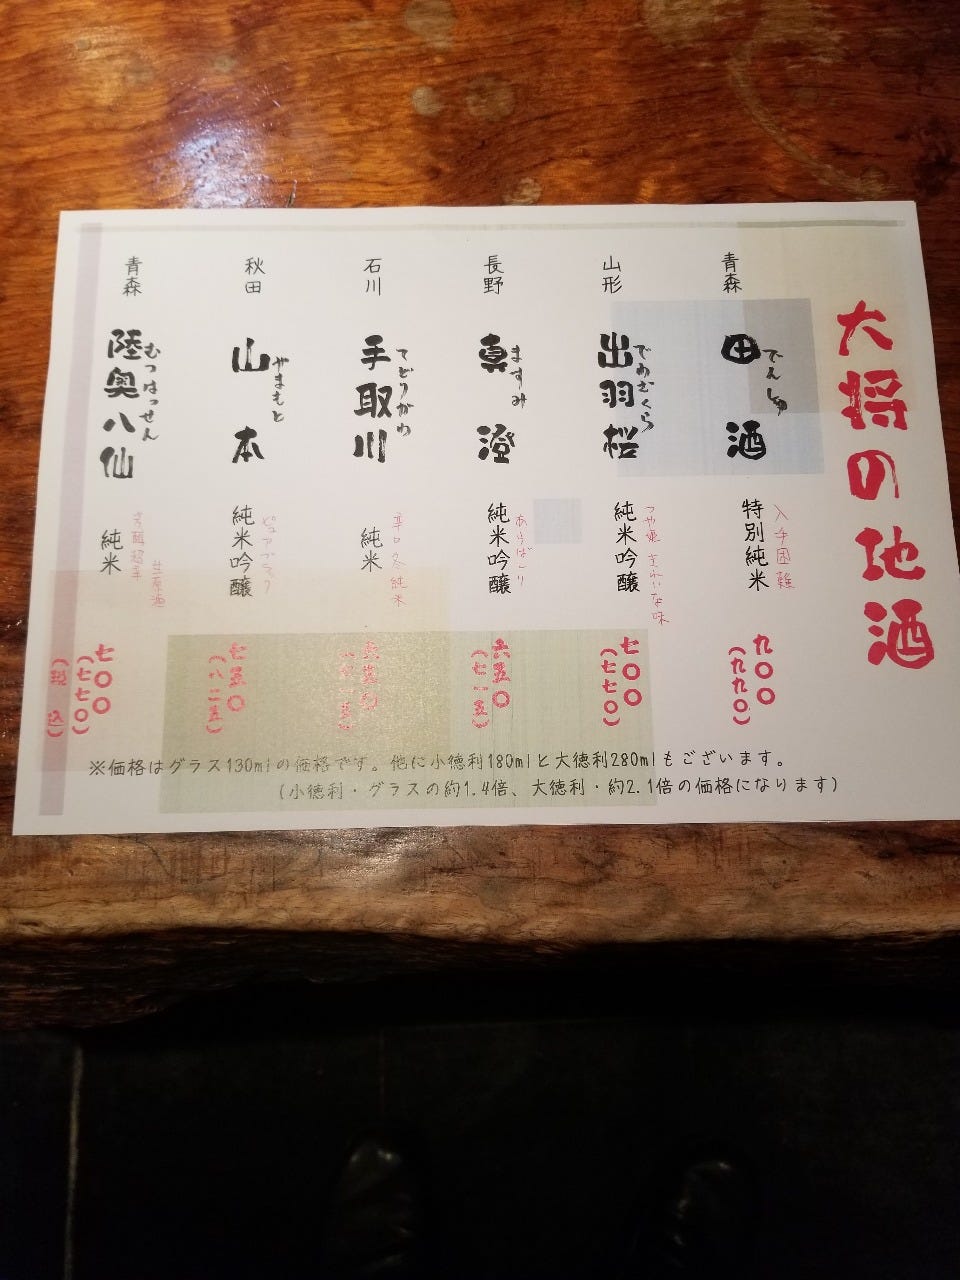 大将の地酒
青森
田酒
でんしゅ
特別純米
入手困難
九〇〇
(九九〇)
山形
出羽桜
でわざくら
純米吟醸
つや姫 きれいな味
七〇〇
(七七〇)
長野
真澄
ますみ
純米吟醸
あらばしり
六五〇
(七一五)
石川
手取川
てどりがわ
純米
辛口 冬純米
六五〇
(七一五)
秋田
山本
やまもと
純米吟醸
ピュアブラック
七五〇
(八二五)
青森
陸奥八仙
むつはっせん
純米
生原酒
七〇〇
(七七〇)
(税込)
※価格はグラス130mlの価格です。他に小徳利180mlと大徳利280mlもございます。
(小徳利・グラスの約1.4倍、大徳利・約2.1倍の価格になります)